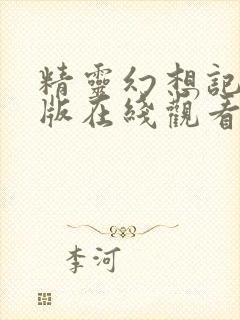 精靈幻想記
版在綫觀看
李河